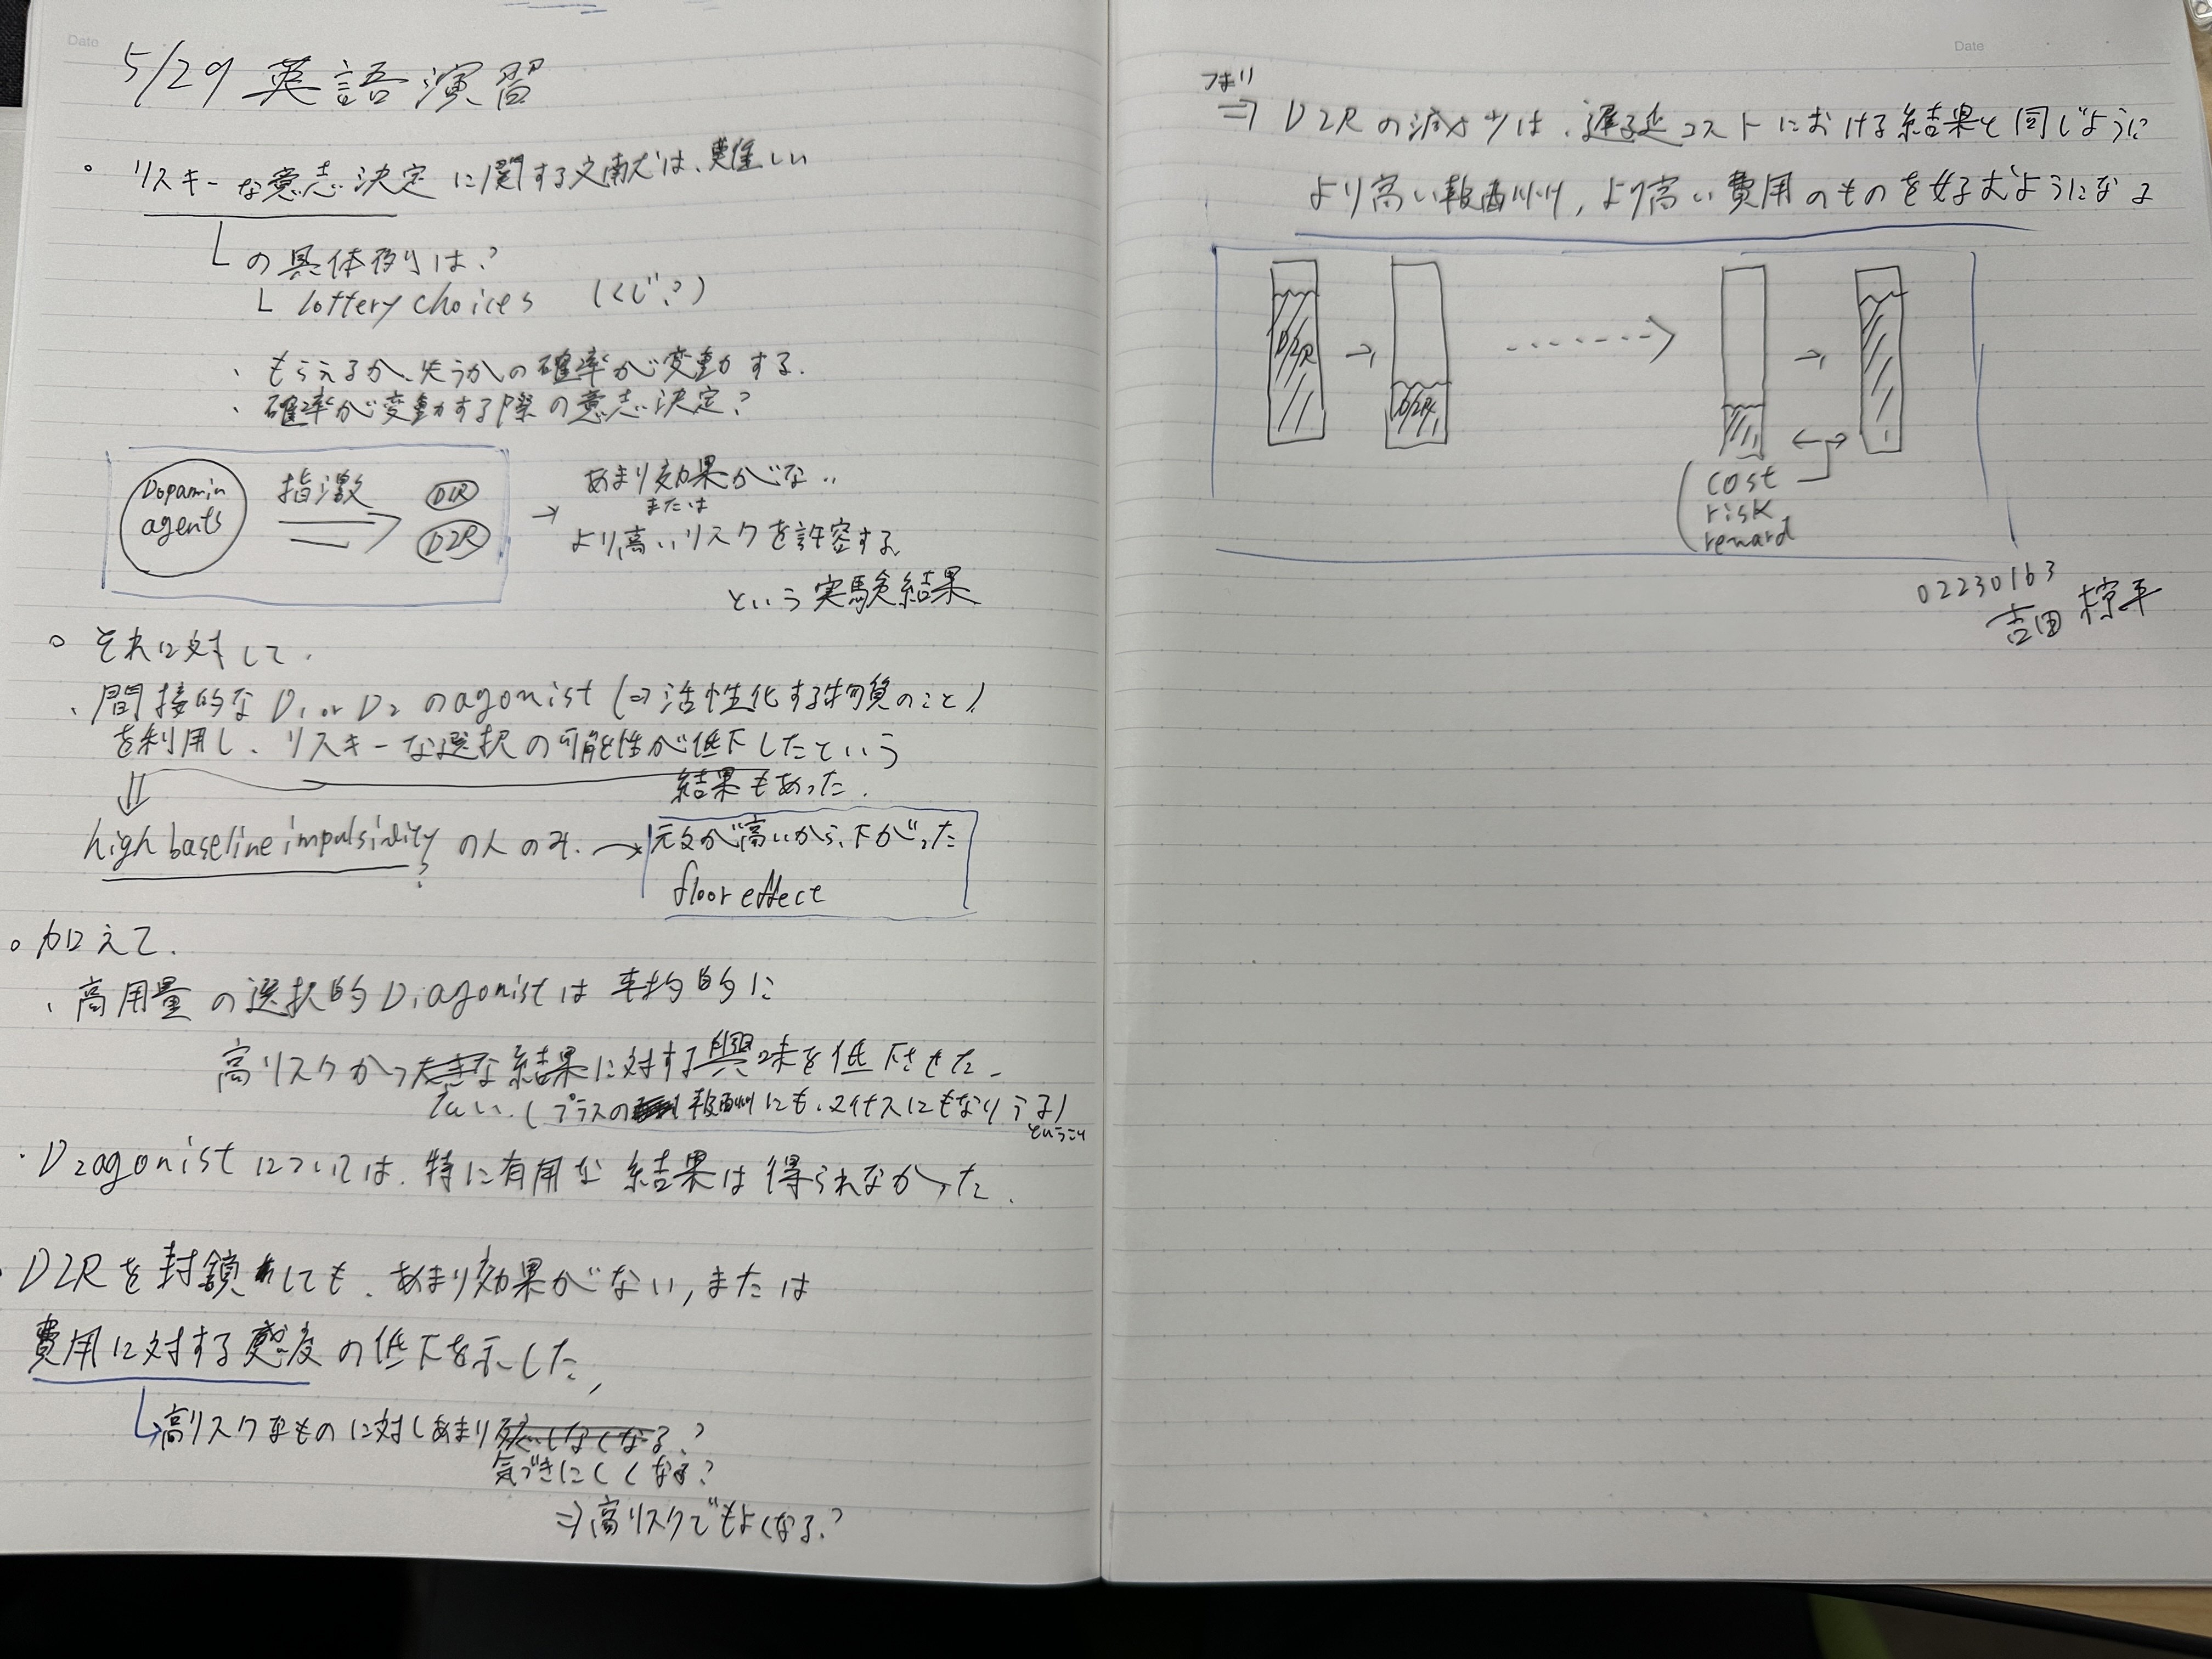 Date
5/29 英語演習
。リスキーな意志決定に関する文献は、難しい
└ の具体例は?
└ lottery choices (くじ?)
・もらえるか、失うかの確率が変動する.
・確率が変動する際の意志決定?
Dopamin
agents
指激
D1R
D2R
→ あまり効果がない
または
より高いリスクを許容する
という実験結果
。それに対して.
、間接的な D₁ or D₂ のagonist (⇒活性化する物質のこと)
を利用し、リスキーな選択の可能性が低下したという
結果もあった.
high baseline impulsidity の人のみ. →
?
元々が高いから、下がった
floor effect
。加えて.
、高用量の選択的D₁agonistは平均的に
高リスクかつ大きな結果に対する興味を低下させた.
広い. (プラスの報酬にも、マイナスにもなりうる)
ということ
・D₂agonistについては、特に有用な結果は得られなかった.
・D2Rを封鎖しても、あまり効果がない, または
費用に対する感度の低下を示した,
↳高リスクなものに対しあまり反応しなくなる?
気づきにくくなる?
⇒高リスクでもよくなる?
Date
つまり
⇒ D2Rの減少は、遅延コストにおける結果と同じように
より高い報酬, より高い費用のものを好むようになる
D2R → D2R
------->
→
cost
risk
reward
02230163
吉田 椋平